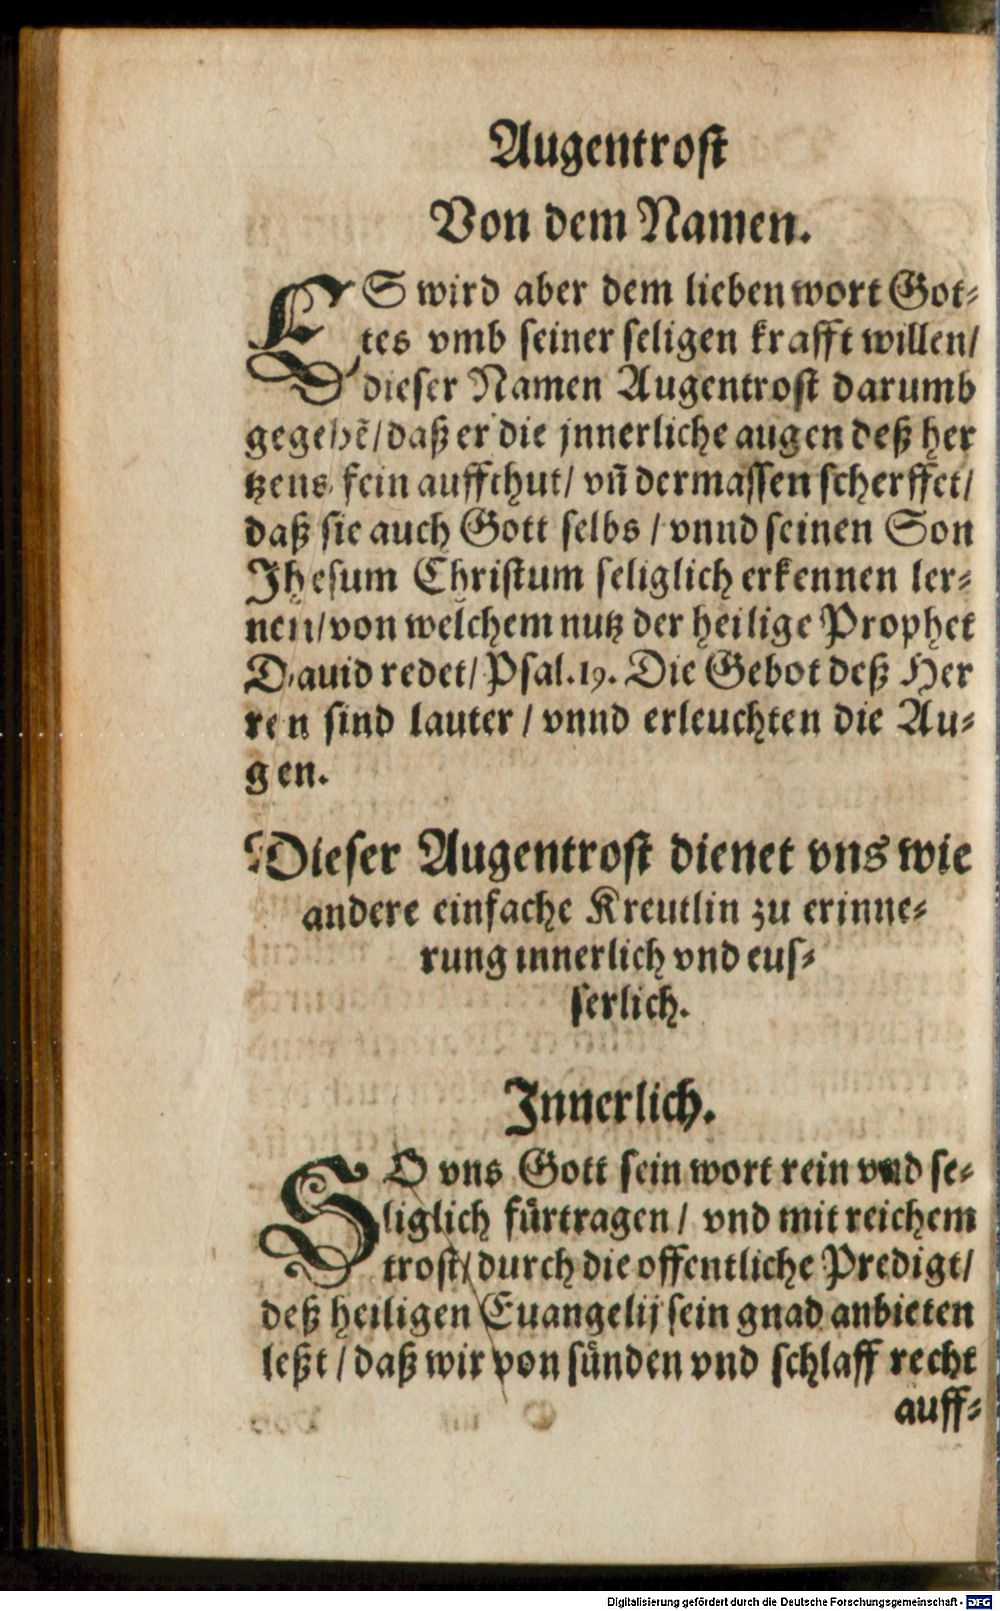 Augentrost
Von dem Namen.
ES wird aber dem lieben wort Got⸗
tes vmb seiner seligen krafft willen/
dieser Namen Augentrost darumb
gegebẽ/daß er die jnnerliche augen deß her
tzens fein auffthut/ vñ dermassen scherffet/
daß sie auch Gott selbs / vnnd seinen Son
Jhesum Christum seliglich erkennen ler⸗
nen/von welchem nutz der heilige Prophet
Dauid redet/ Psal.19. Die Gebot deß Her
ren sind lauter / vnnd erleuchten die Au⸗
gen.
Dieser Augentrost dienet vns wie
andere einfache Kreutlin zu erinne⸗
rung innerlich vnd eus⸗
serlich.
Jnnerlich.
SO vns Gott sein wort rein vnd se⸗
liglich fürtragen / vnd mit reichem
trost/ durch die offentliche Predigt/
deß heiligen Euangelij sein gnad anbieten
leßt / daß wir von sünden vnd schlaff recht
auff⸗
Digitalisierung gefördert durch die Deutsche Forschungsgemeinschaft - DFG